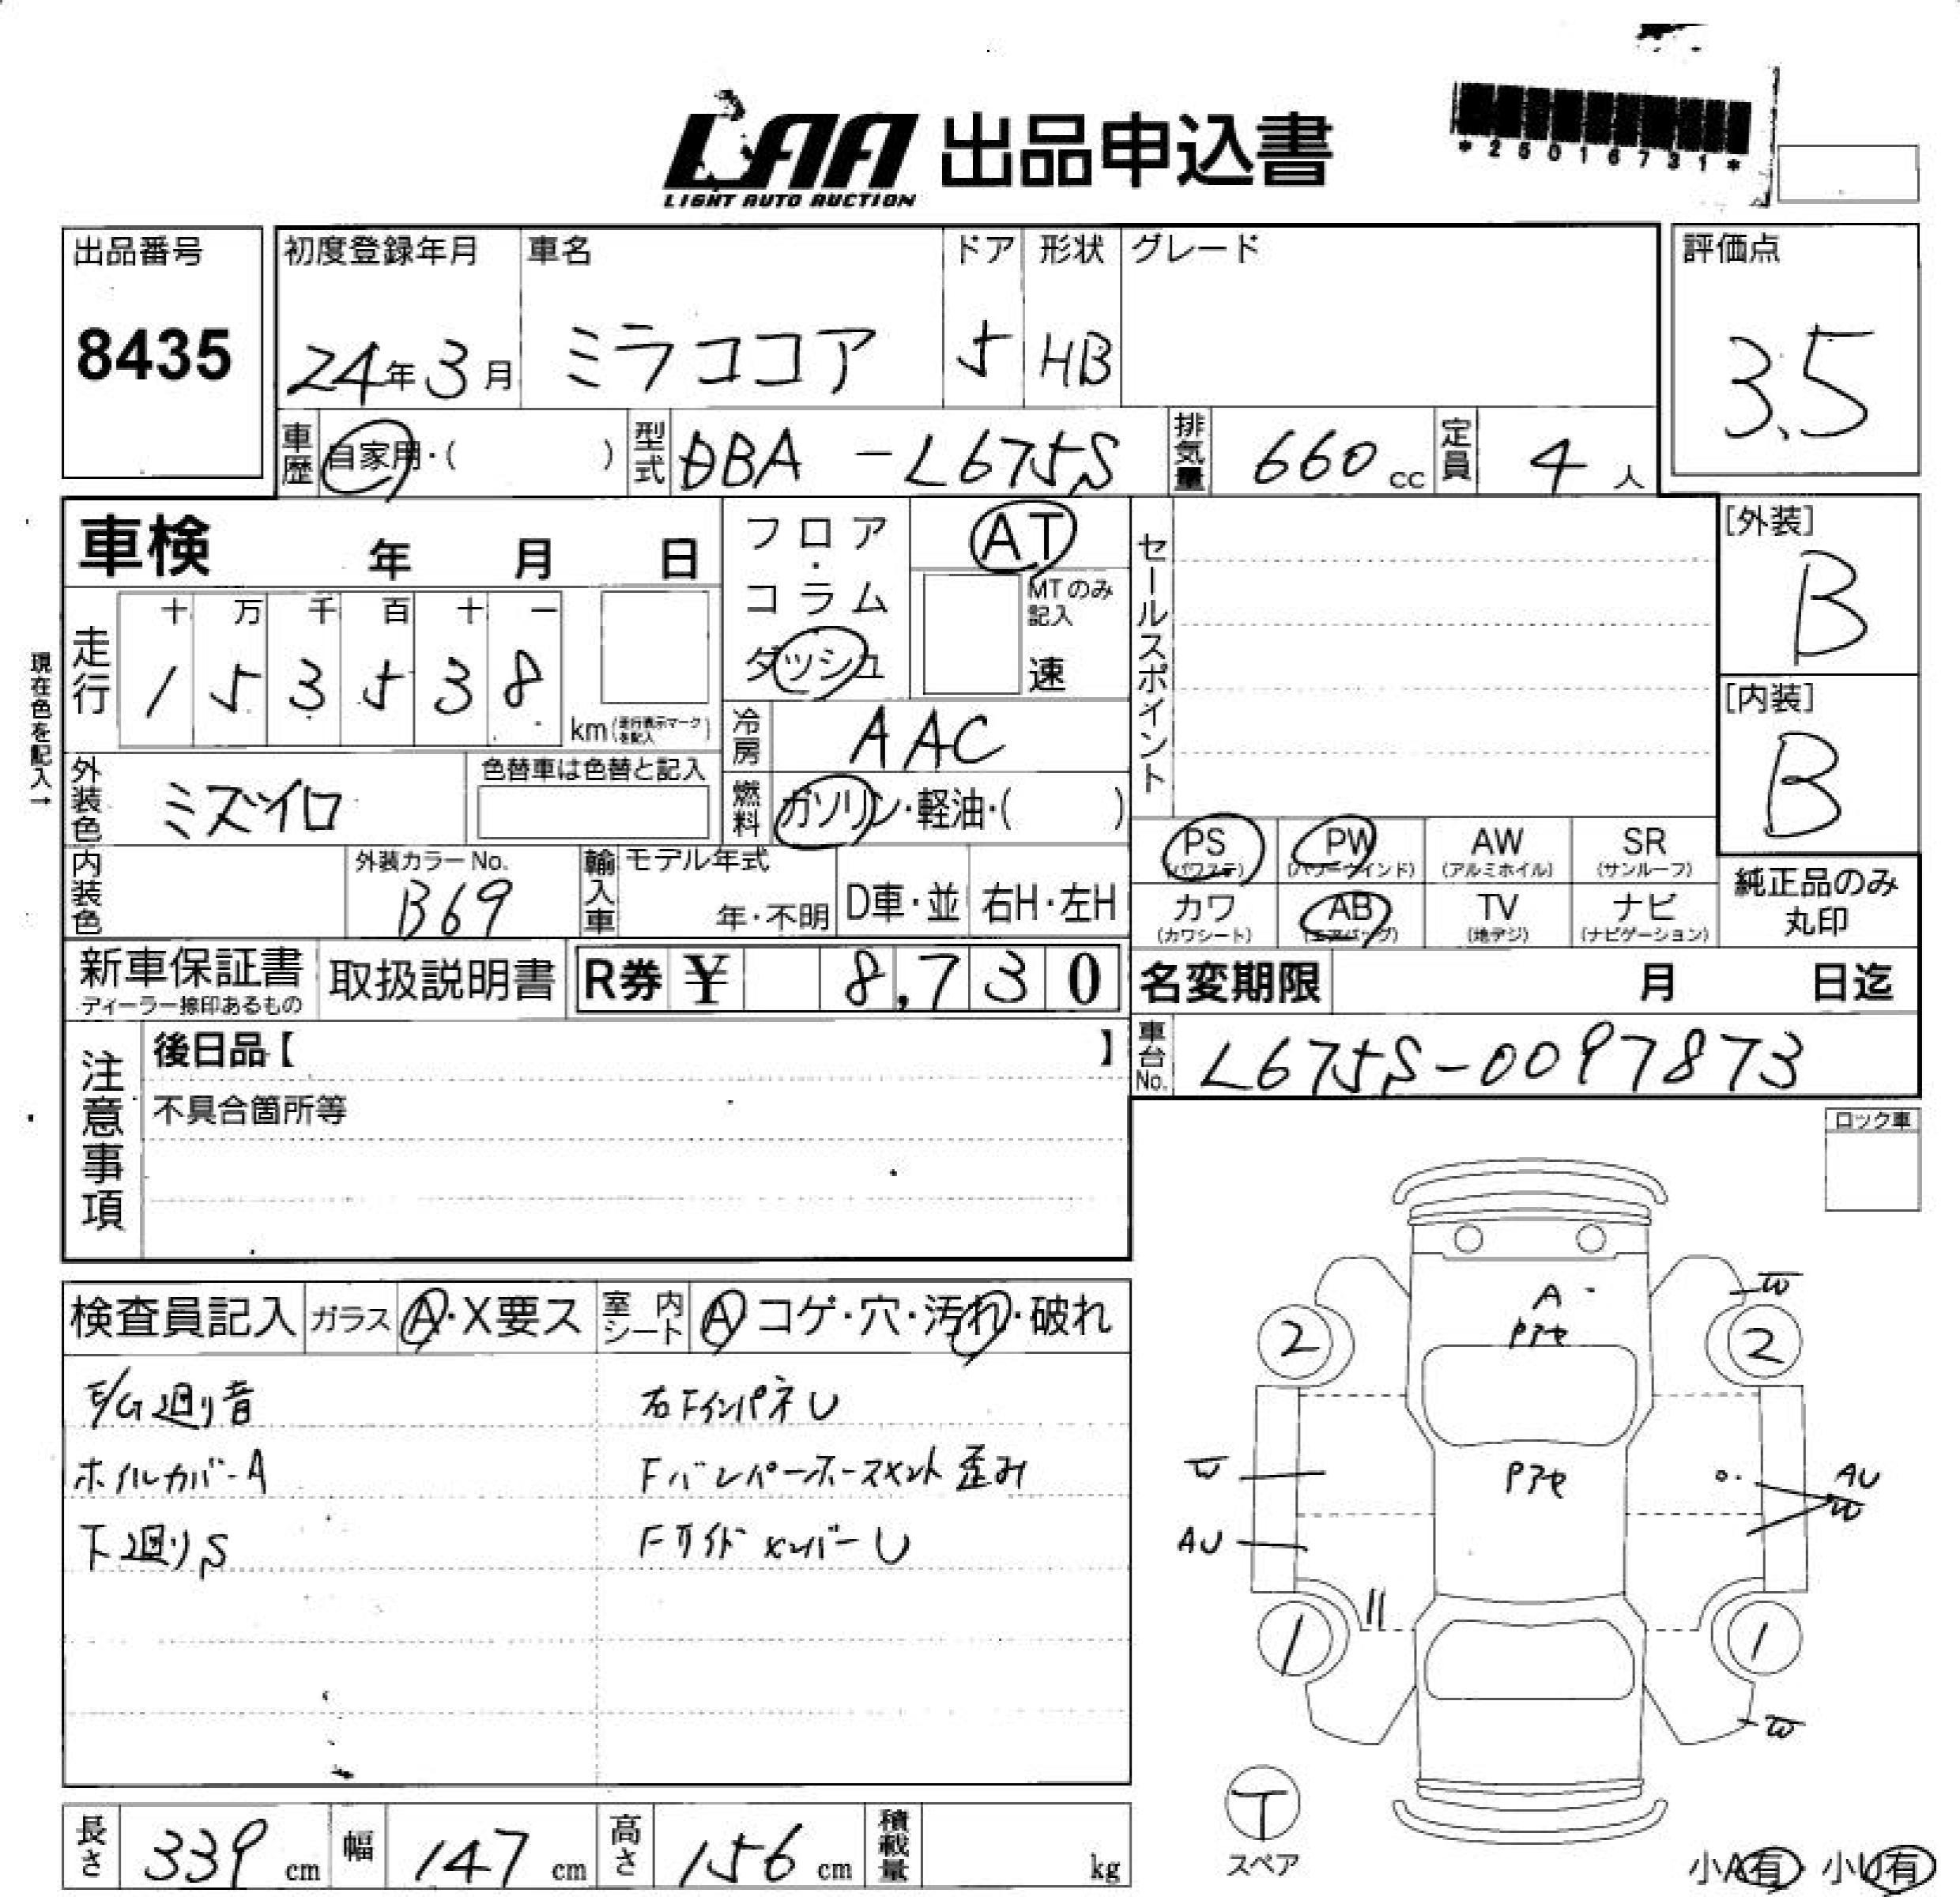 LAA 出品申込書
LIGHT AUTO AUCTION
*25016731*
出品番号
8435
初度登録年月
24年3月
車名
ミラココア
ドア
5
形状
HB
グレード
評価点
3.5
車歴 自家用・( )
型式 DBA-L675S
排気量 660cc
定員 4人
車検 年 月 日
フロア・コラム・ダッシュ
AT
MTのみ記入
速
セールスポイント
[外装]
B
[内装]
B
現在色を記入→
走行
十 万 千 百 十 一
1 5 3 5 3 8
km(走行表示マークを記入)
冷房 AAC
燃料 ガソリン・軽油・( )
外装色 ミズイロ
色替車は色替と記入
内装色
外装カラーNo.
B69
輸入車
モデル年式
年・不明
D車・並
右H・左H
PS (パワステ)
PW (パワーウインド)
AW (アルミホイル)
SR (サンルーフ)
カワ (カワシート)
AB (エアバッグ)
TV (地デジ)
ナビ (ナビゲーション)
純正品のみ丸印
新車保証書
ディーラー捺印あるもの
取扱説明書
R券 ¥ 8,730
名変期限 月 日迄
車台No. L675S-0097873
注意事項
後日品【 】
不具合箇所等
ロック車
検査員記入
ガラス A・X要ス
室内シート A コゲ・穴・汚れ・破れ
E/G廻り音
ホイルカバーA
下廻りS
右FインパネU
Fバンパーホースメント歪み
FサイドメンバーU
A
Pアセ
2
2
W
W
AU
Pアセ
AU
W
1
1
W
T
スペア
小A有 小U有
長さ 339cm
幅 147cm
高さ 156cm
積載量 kg